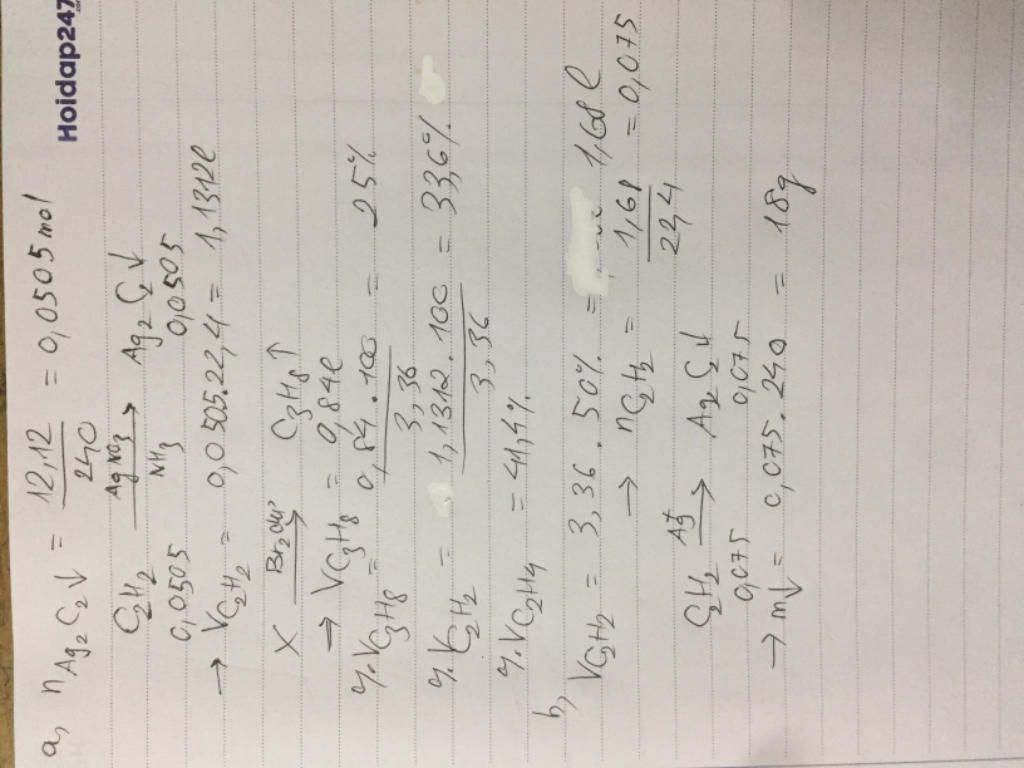 Hoidap247
a, nAg2C2↓ = 12,12/240 = 0,0505 mol
C2H2 →(AgNO3/NH3) Ag2C2↓
0,0505 0,0505
→ VC2H2 = 0,0505.22,4 = 1,1312l
X →(Br2 dư) C3H8↑
→ VC3H8 = 0,84l
%VC3H8 = 0,84.100/3,36 = 25%
%VC2H2 = 1,1312.100/3,36 = 33,6%
%VC2H4 = 41,4%
b,
VC2H2 = 3,36.50% = 1,68l
→ nC2H2 = 1,68/22,4 = 0,075
C2H2 →(Ag+) Ag2C2↓
0,075 0,075
→ m↓ = 0,075.240 = 18g